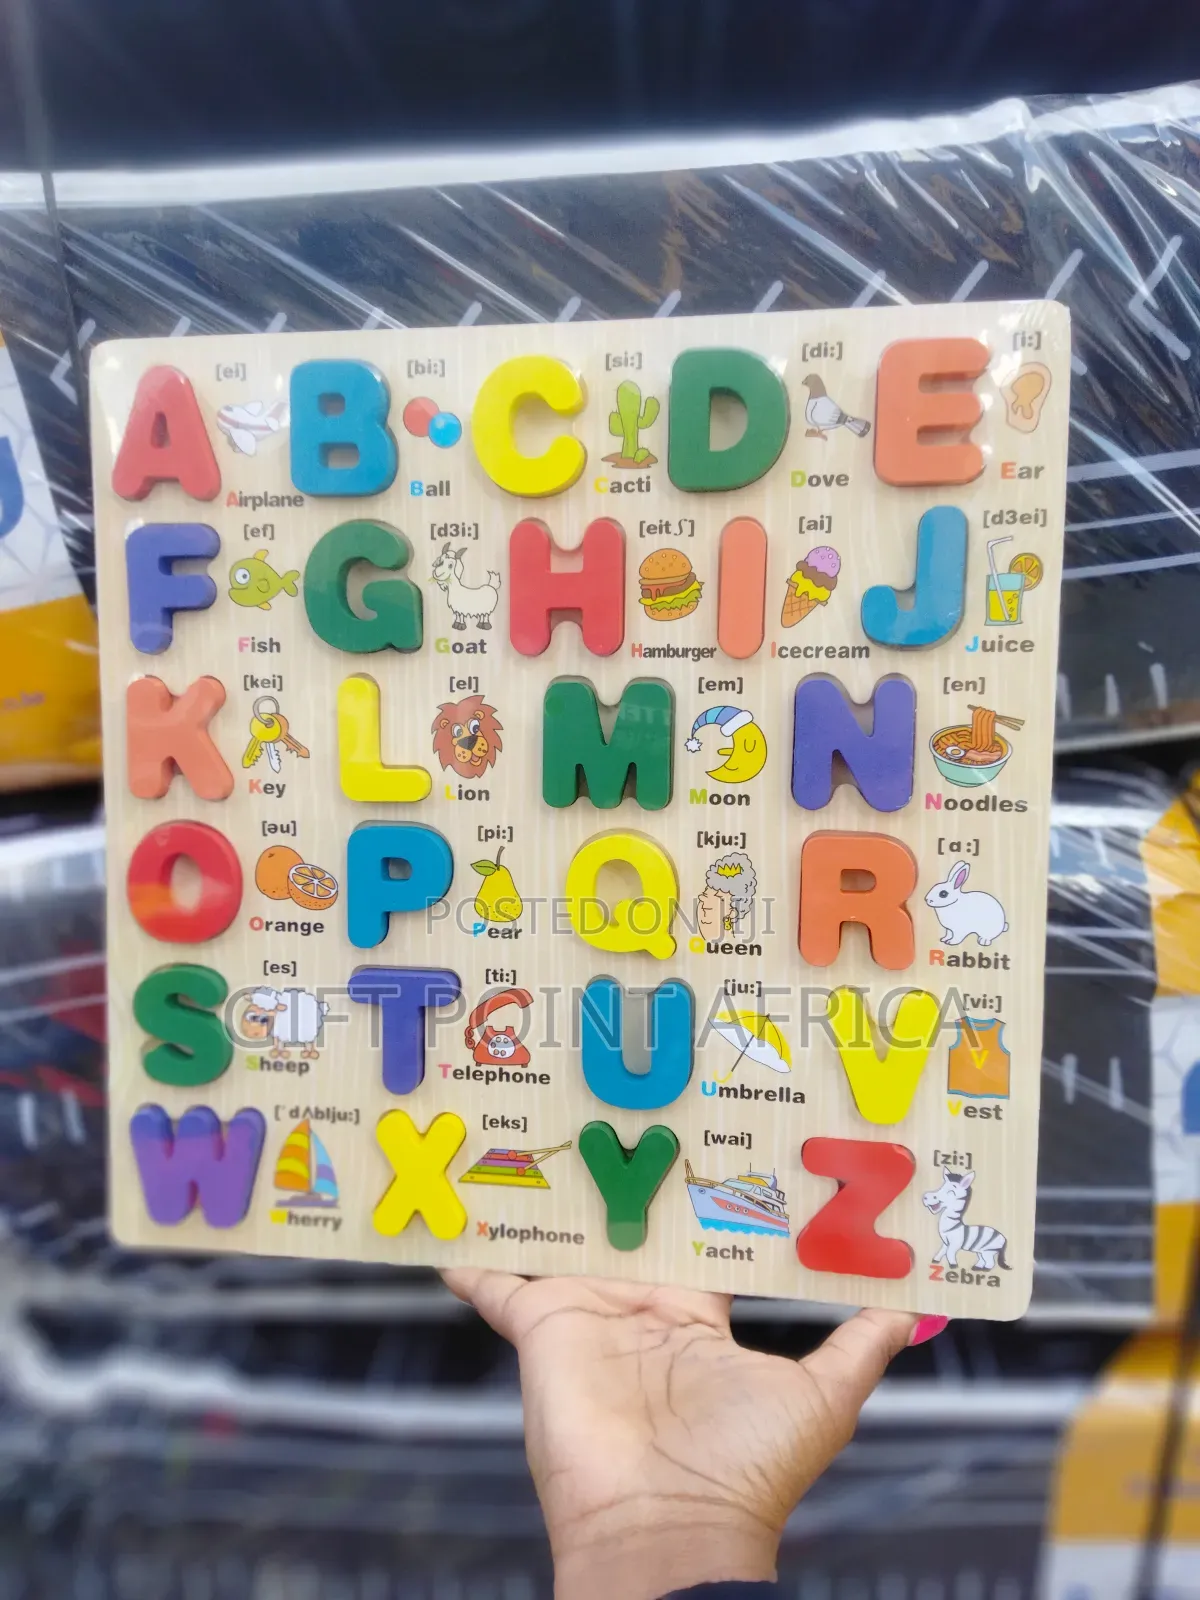 A [ei] B [bi:] C [si:] D [di:] E [i:]
Airplane Ball Cacti Dove Ear
F [ef] G [d3i:] H [eitʃ] I [ai] J [d3ei]
Fish Goat Hamburger Icecream Juice
K [kei] L [el] M [em] N [en]
Key Lion Moon Noodles
O [əu] P [pi:] Q [kju:] R [ɑ:]
Orange Pear Queen Rabbit
POSTED ON JIJI
S [es] T [ti:] U [ju:] V [vi:]
GIFT POINT AFRICA
Sheep Telephone Umbrella V Vest
W [ˈdʌblju:] X [eks] Y [wai] Z [zi:]
Wherry Xylophone Yacht Zebra